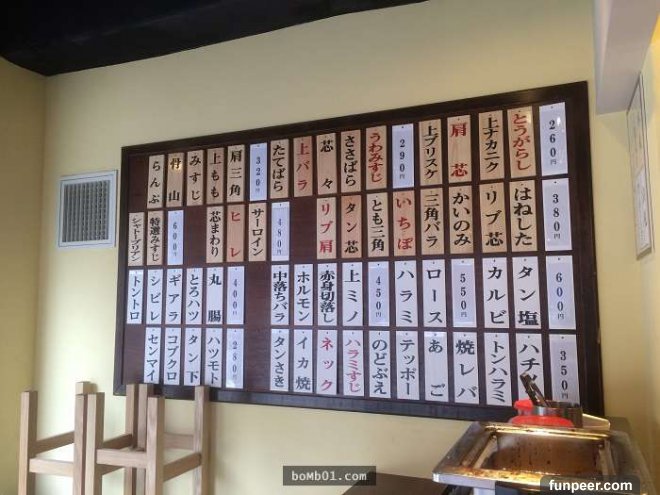 260円
とうがらし
上ナカニク
肩芯
上ブリスケ
290円
うわみすじ
ささばら
芯々
上バラ
たてばら
320円
肩三角
上もも
みすじ
骨山
らんぷ
380円
はねした
リブ芯
かいのみ
三角バラ
いちぼ
とも三角
タン芯
リブ肩
480円
サーロイン
ヒレ
芯まわり
600円
特選みすじ
シャトーブリアン
600円
タン塩
カルビ
550円
ロース
ハラミ
450円
上ミノ
赤身切落し
ホルモン
中落ちバラ
400円
丸腸
とろハツ
ギアラ
シビレ
トントロ
350円
ハチ
トンハラミ
焼レバ
あご
テッポー
のどぶえ
ハラミすじ
ネック
イカ焼
タンさき
280円
ハツモト
タン下
コブクロ
センマイ
boMb01.com
funpeer.com